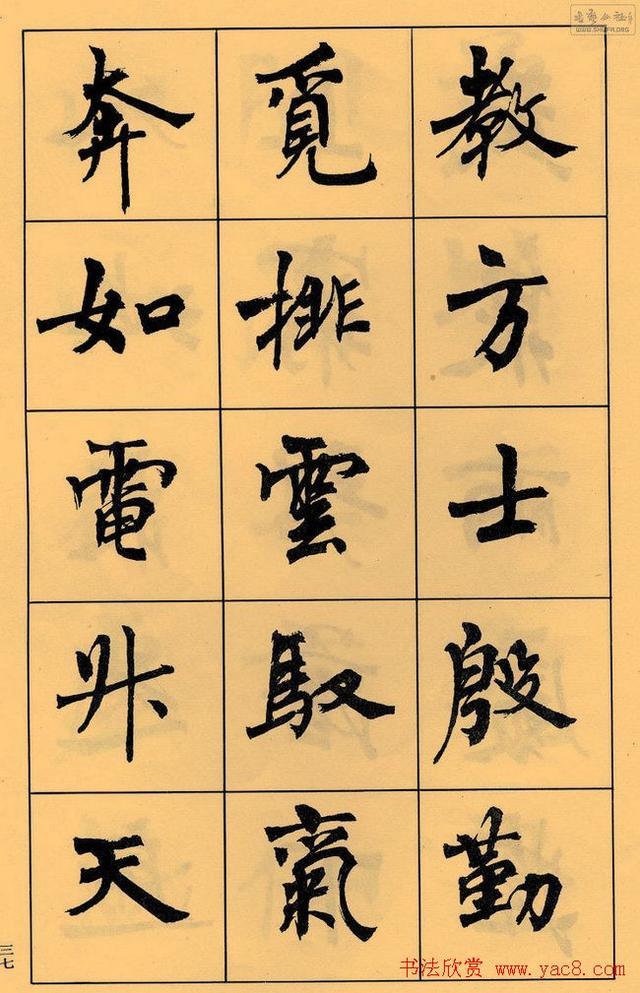 教方士殷勤
覓排雲馭氣
奔如電升天
三七
书法欣赏 www.yac8.com
WWW.SHUFA.ORG